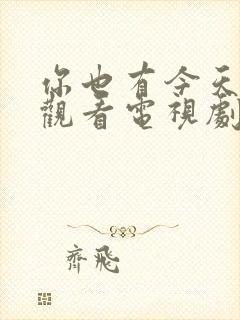 你也有今天
觀看電視劇
齊飛